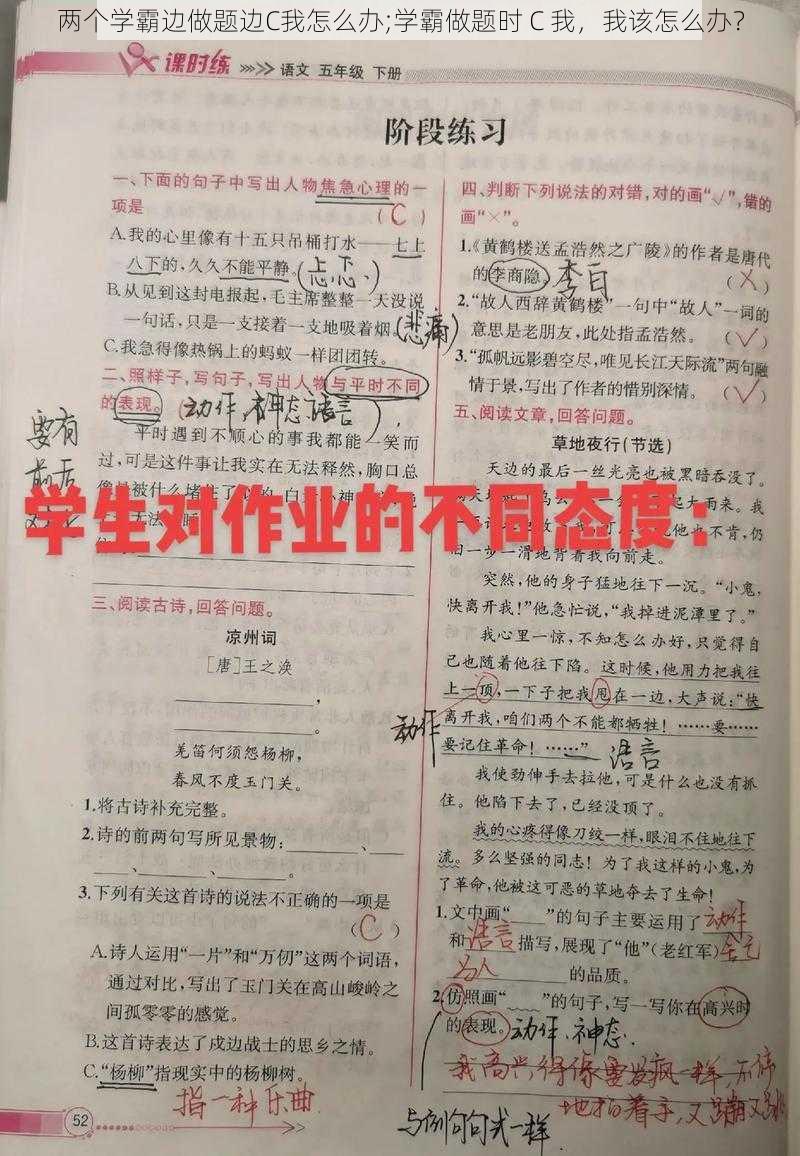 两个学霸边做题边C我怎么办;学霸做题时 C 我，我该怎么办?
课时练 语文 五年级 下册
阶段练习
一、下面的句子中写出人物焦急心理的一
项是 (C)
A.我的心里像有十五只吊桶打水——七上
八下的,久久不能平静。(忐忑、)
B.从见到这封电报起,毛主席整整一天没说
一句话,只是一支接着一支地吸着烟。(悲痛)
C.我急得像热锅上的蚂蚁一样团团转。
二、照样子,写句子,写出人物与平时不同
的表现。(动作、神态、语言)
要有
前后
平时遇到不顺心的事我都能一笑而
过,可是这件事让我实在无法释然,胸口总
学生对作业的不同态度：
三、阅读古诗,回答问题。
凉州词
[唐]王之涣
羌笛何须怨杨柳,
春风不度玉门关。
1.将古诗补充完整。
2.诗的前两句写所见景物：、
、、、
3.下列有关这首诗的说法不正确的一项是
(C)
A.诗人运用“一片”和“万仞”这两个词语,
通过对比,写出了玉门关在高山峻岭之
间孤零零的感觉。
B.这首诗表达了戍边战士的思乡之情。
C.“杨柳”指现实中的杨柳树。
指一种乐曲
52
四、判断下列说法的对错,对的画“√”,错的
画“×”。
1.《黄鹤楼送孟浩然之广陵》的作者是唐代
的李商隐。李白 (×)
2.“故人西辞黄鹤楼”一句中“故人”一词的
意思是老朋友,此处指孟浩然。(√)
3.“孤帆远影碧空尽,唯见长江天际流”两句融
情于景,写出了作者的惜别深情。(√)
五、阅读文章,回答问题。
草地夜行(节选)
天边的最后一丝光亮也被黑暗吞没了。
起大雨来。我
他也不肯,仍
旧一步一滑地背着我向前走。
突然,他的身子猛地往下一沉。“小鬼,
快离开我!”他急忙说,“我掉进泥潭里了。”
我心里一惊,不知怎么办好,只觉得自
己也随着他往下陷。这时候,他用力把我往
上一顶,一下子把我甩在一边,大声说:“快
离开我,咱们两个不能都牺牲! ……要……
要记住革命! ……”语言
动作
我使劲伸手去拉他,可是什么也没有抓
住。他陷下去了,已经没顶了。
我的心疼得像刀绞一样,眼泪不住地往下
流。多么坚强的同志! 为了我这样的小鬼,为
了革命,他被这可恶的草地夺去了生命!
1.文中画“”的句子主要运用了动作
和语言描写,展现了“他”(老红军)舍己
为人的品质。
2.仿照画“”的句子,写一写你在高兴时
的表现。动作、神态.
我高兴得像要发疯一样,不停
地拍着手,又蹦又跳
与例句句式一样